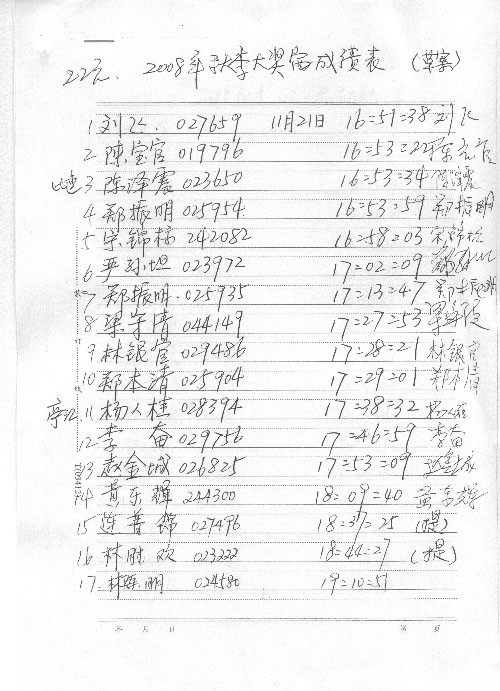 22元. 2008年秋季大奖宿成绩表 (草案)
1 刘飞. 027659 11月21日 16=51=38 刘飞
2 陈宝官 019796 16=53=22 陈宝官
3 陈泽震 023650 16=53=34 陈泽震
4 郑振明 025954. 16=53=59 郑振明
5 宋锦棕 242082 16=58=03
6 严孙坦 023972 17=02=09
7 郑振明. 025935 17=13=47 郑振明
8 梁守清 044149 17=27=53
9 林银官 029486 17=28=21 林银官
10 郑本清 025904 17=29=01 郑本清
11 杨人桂 028394 17=38=32 杨人桂
12 李奋 029756 17=46=59 李奋
13 赵金城 026825 17=53=09 赵金城
14 黄东辉 244300 18=09=40
15 陈普锦 027496 18=37=25 (提)
16 林时欢 023222 18=44=27 (提)
17. 林栋明 024580 19=10=51
年 月 日 第 页